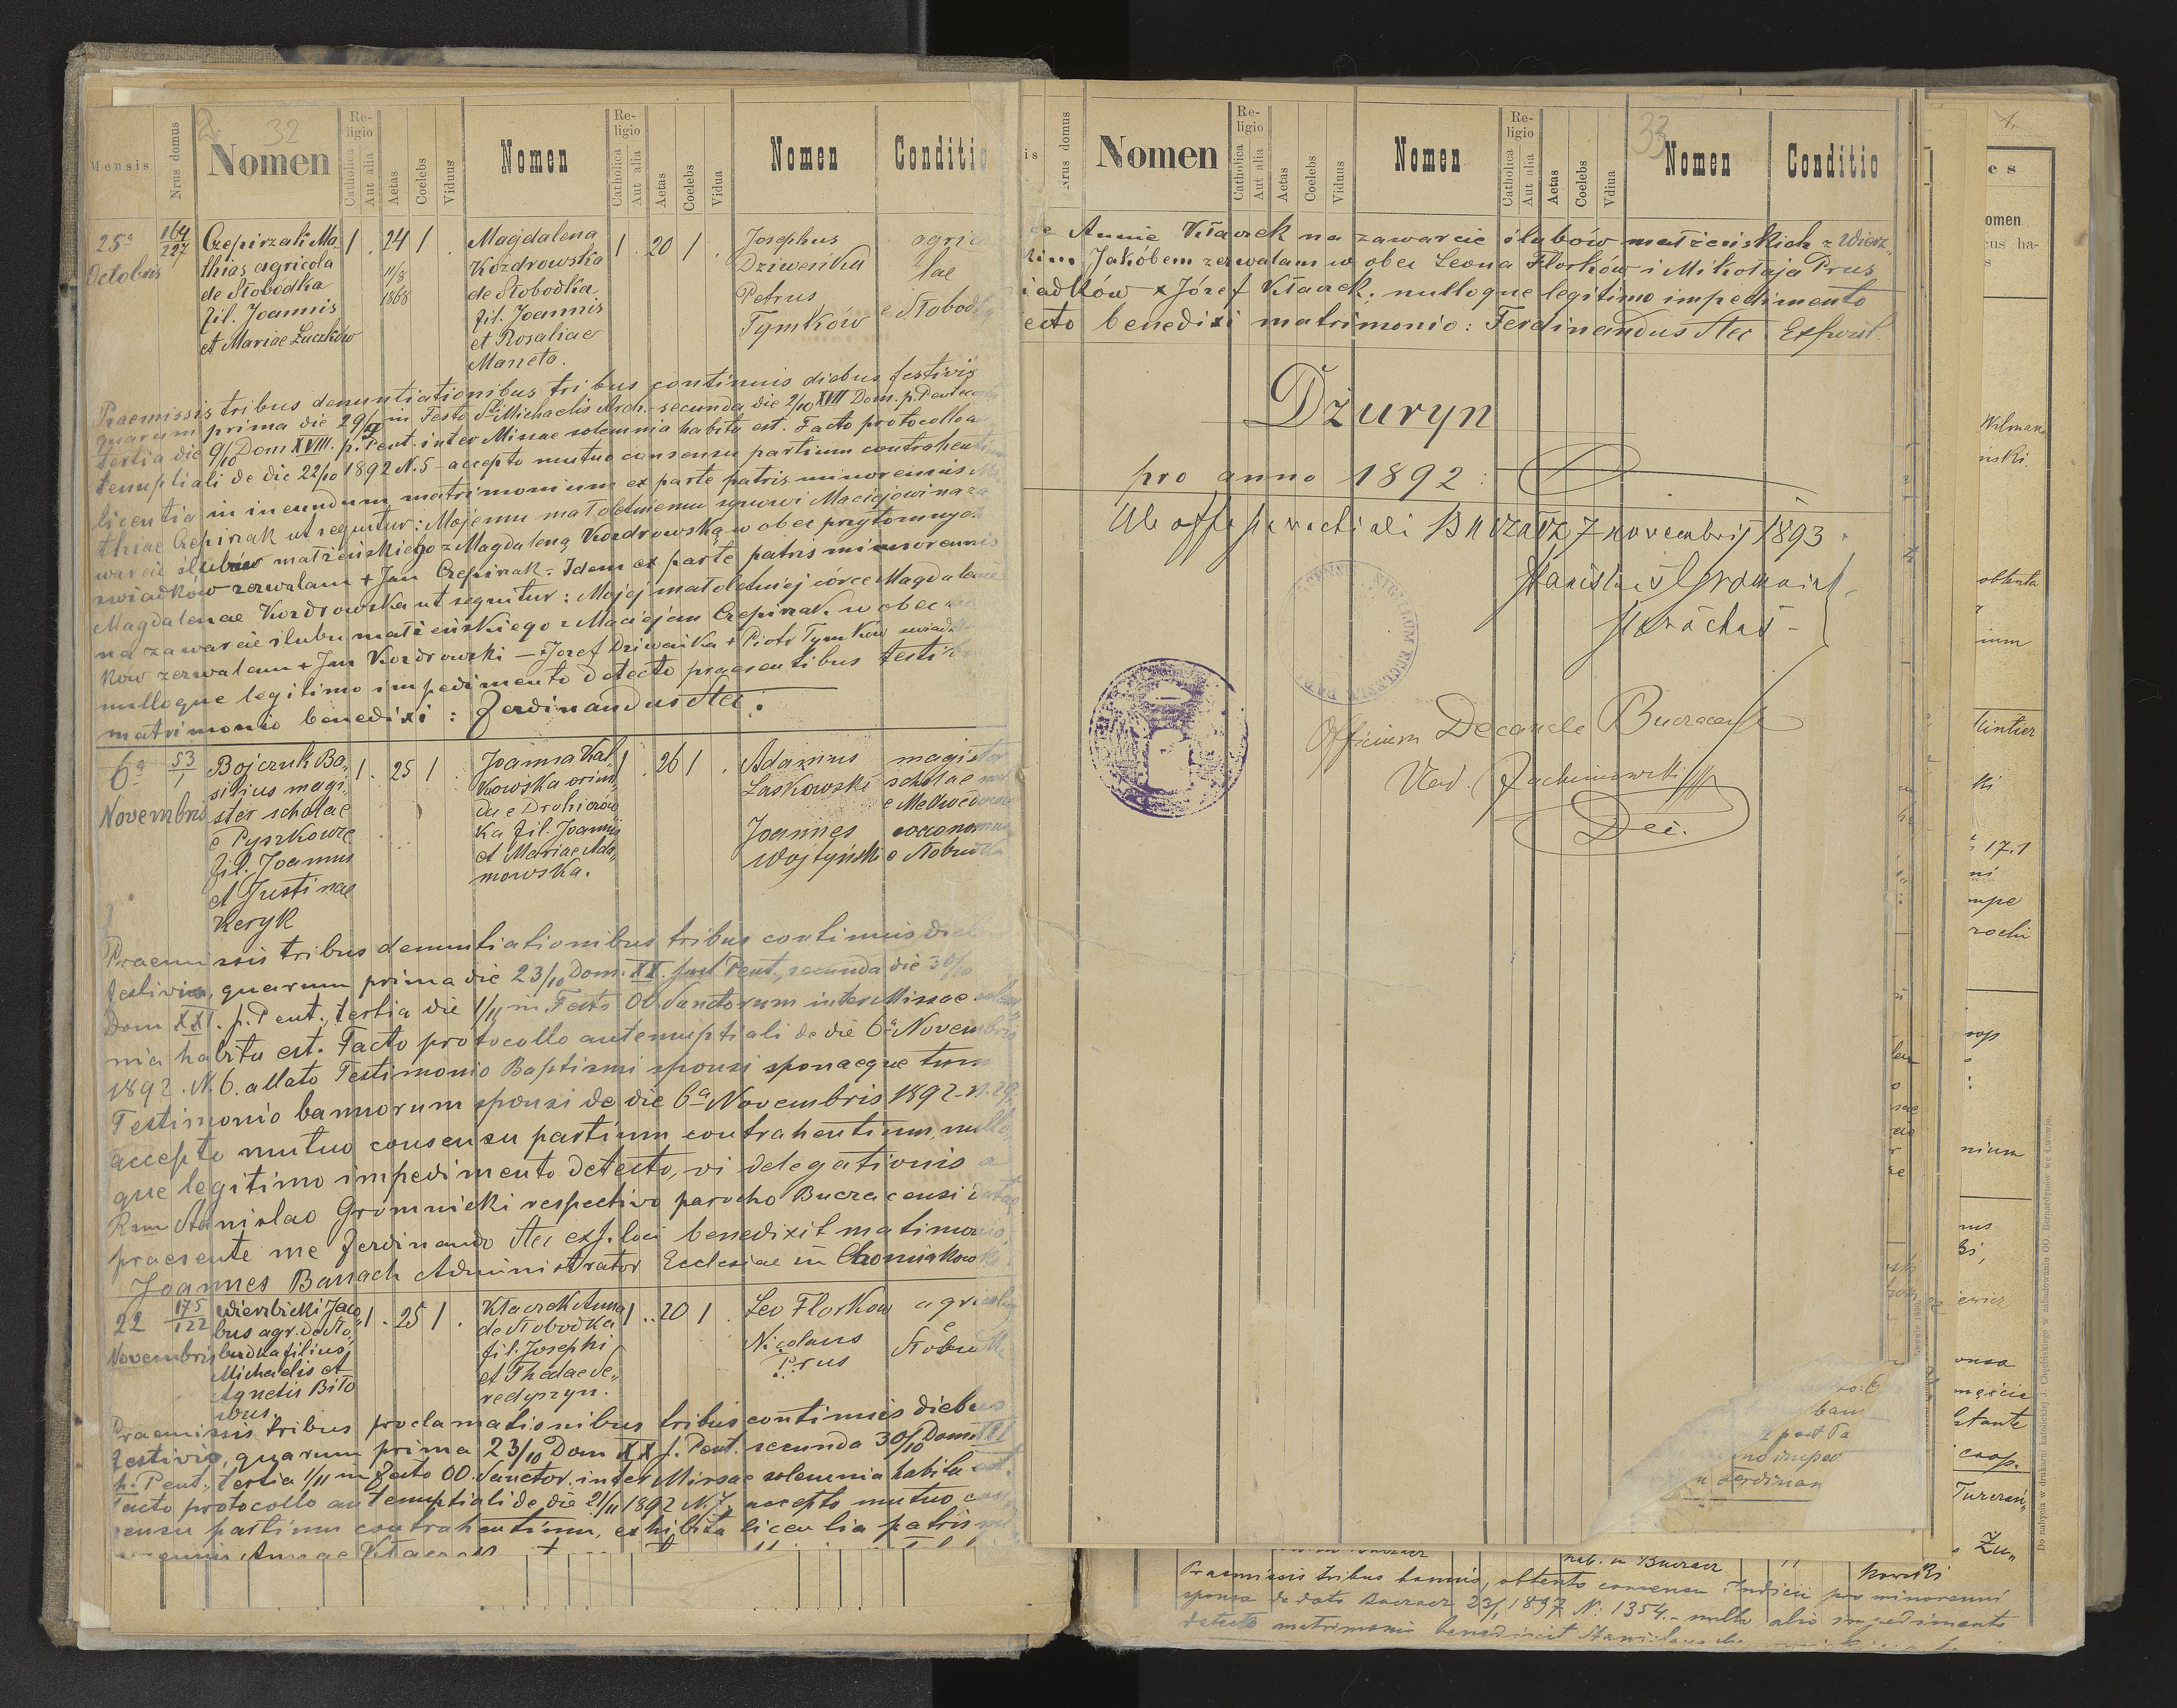 2. 32
Mensis
Nrus domus
Nomen
Religio
Catholica
Aut alia
Aetas
Coelebs
Viduus
Nomen
Religio
Catholica
Aut alia
Aetas
Coelebs
Vidua
Nomen
Conditio
25ª Octobris
164/227
Czepirzak Ma-
thias agricola
de Słobodka
fil. Joannis
et Mariae Łuczków
1 . 24 1 .
11/8
1868
Magdalena
Kozdrowska
de Słobodka
fil. Joannis
et Rosaliae
Maneta.
1 . 20 1 .
Josephus
Dziweńka
Petrus
Tymków
agrico
lae
e Słobod
Praemissis tribus denuntiationibus tribus continuis diebus festivis
quarum prima die 29/9 in Festo Sti Michaelis Arch. secunda die 2/10 XVII Dom. p. Pentecost
tertia die 9/10 Dom XVIII. p. Pent. inter Missae solemnia habita est. Facto protocollo a
tenuptiali de die 22/10 1892 N. 5 - accepto mutuo consensu partium contrahen
licentia in ineundum matrimonium ex parte patris minorennis
thiae Czepirzak ut sequitur: Mojemu małoletniemu synowi Maciejowi na za
warcie ślubów małżeńskiego z Magdaleną Kozdrowską w obec przytomnych
świadków zezwalam + Jan Czepirzak. Idem ex parte patris minorennis
Magdalenae Kozdrowska ut sequitur: Mojej małoletniej córce Magdalenie
na zawarcie ślubu małżeńskiego z Maciejem Czepirzak w obec
ków zezwalam + Jan Kozdrowski - + Józef Dziweńka + Piotr Tymków świad
nulloque legitimo impedimento detecto praesentibus testi
matrimonio benedixi: Ferdinandus Stec.
6ª Novembris
53/1
Bojczuk Ba-
silius magi-
ster scholae
e Pyszkowce
fil. Joannis
et Justinae
Keryk
1 . 25 1 .
Joanna Kal-
kowska oriun-
da e Drohiczów
ka fil. Joannis
et Mariae Ada-
mowska.
1 . 26 1 .
Adamus
Laskowski
Joannes
Wojtyński
magister
scholae
e Medwedow
oeconomus
e Słobudka
Praemissis tribus denuntiationibus tribus continuis diebus
festivis, quarum prima die 23/10 Dom. XX. post Pent., secunda die 30/10
Dom XXI. p. Pent., tertia die 1/11 in Festo OO Sanctorum inter Missae solem
nia habita est. Facto protocollo antenuptiali de die 6ª Novembris
1892. N. 6. allato Testimonio Baptismi sponsi sponsaeque tum
Testimonio bannorum sponsi de die 6ª Novembris 1892 N. 29.
accepto mutuo consensu partium contrahentium, nullo
que legitimo impedimento detecto, vi delegationis a
Rmo Stanislao Gromnicki respectivo parocho Buczacensi datae
praesente me Ferdinando Stec exp. loci benedixit matimonio.
Joannes Banach Administrator Ecclesiae in Chomiakow
22 Novembris
175/122
Wierzbicki Jaco
bus agr. de Sło-
budka filius
Michaelis et
Agnetis Biło
wus
1 . 25 1 .
Kłaczek Anna
de Słobodka
fil. Josephi
et Theclae Se-
redyszyn.
1 . . 20 1 .
Leo Florków
Nicolaus
Prus
agricolae
e
Słobudk
Praemissis tribus proclamationibus tribus continuis diebus
festivis, quarum prima 23/10 Dom XX p. Pent. secunda 30/10 Dom XXI
p. Pent., tertia 1/11 in Festo OO. Sanctor. inter Missae solemnia habita est.
Facto protocollo antenuptiali de die 21/11 1892 N. 7. accepto mutuo con
sensu partium contrahentium, exhibita licentia patris
33
Nrus domus
Nomen
Religio
Catholica
Aut alia
Aetas
Coelebs
Viduus
Nomen
Religio
Catholica
Aut alia
Aetas
Coelebs
Vdiua
Nomen
Conditio
ce Annie Kłaczek na zawarcie ślubów małżeńskich z Wierz-
kim Jakóbem zezwalam w obec Leona Florków i Mikołaja Prus
iadków + Józef Kłaczek; nulloque legitimo impedimento
ecto benedixi matrimonio: Ferdinandus Stec Exposit.
Dżuryn
pro anno 1892:
Ab offo parochiali Buczacz 7 novembris 1893.
Stanislaus Gromnicki
parochus
SIGILLUM ECCLESIAE PAR
Officium Decanale Buczacense
Ved. Zachniowski
Dec.
ban
no imped
Ferdinan
nab. in Buczacz
kowski
Praemissis tribus bannis, obtento consensu Judicii pro minorenni
sponsa de dato Buczacz 23/1 1897 N: 1354. - nullo alio impedimento
detecto matrimonio benedixit Stanislaus
omen
Wilman
nski
obtenta
Kintier
ki
17.1
rochi
nium
onsa
stante
coop.
Turczań-
Zu-
Do nabycia w drukarni katolickiej J. Chęcińskiego w zabudowaniu OO. Bernardynów we Lwowie.